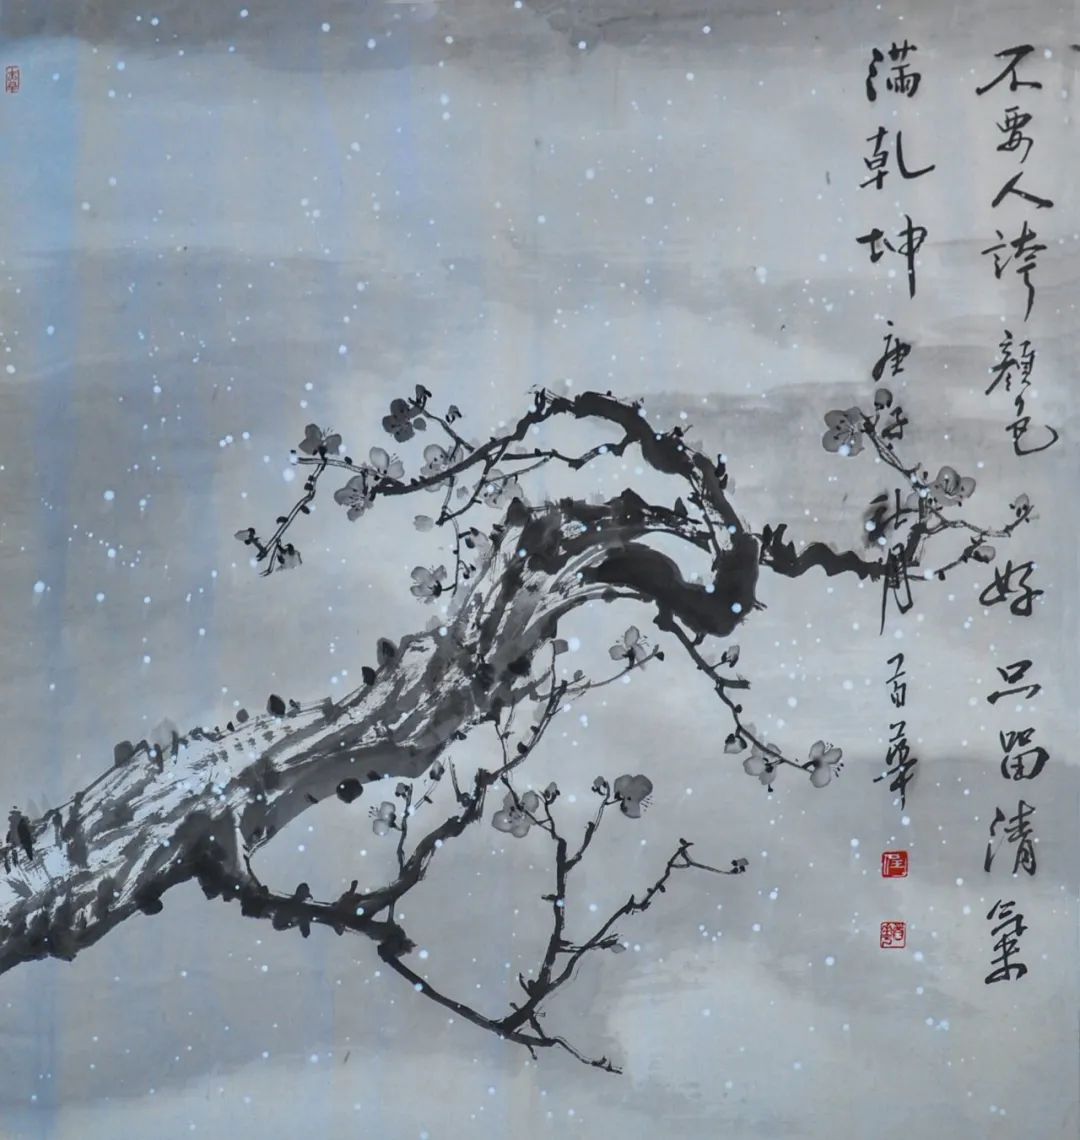 不要人誇顏色好只留清氣
滿乾坤庚子秋月百華